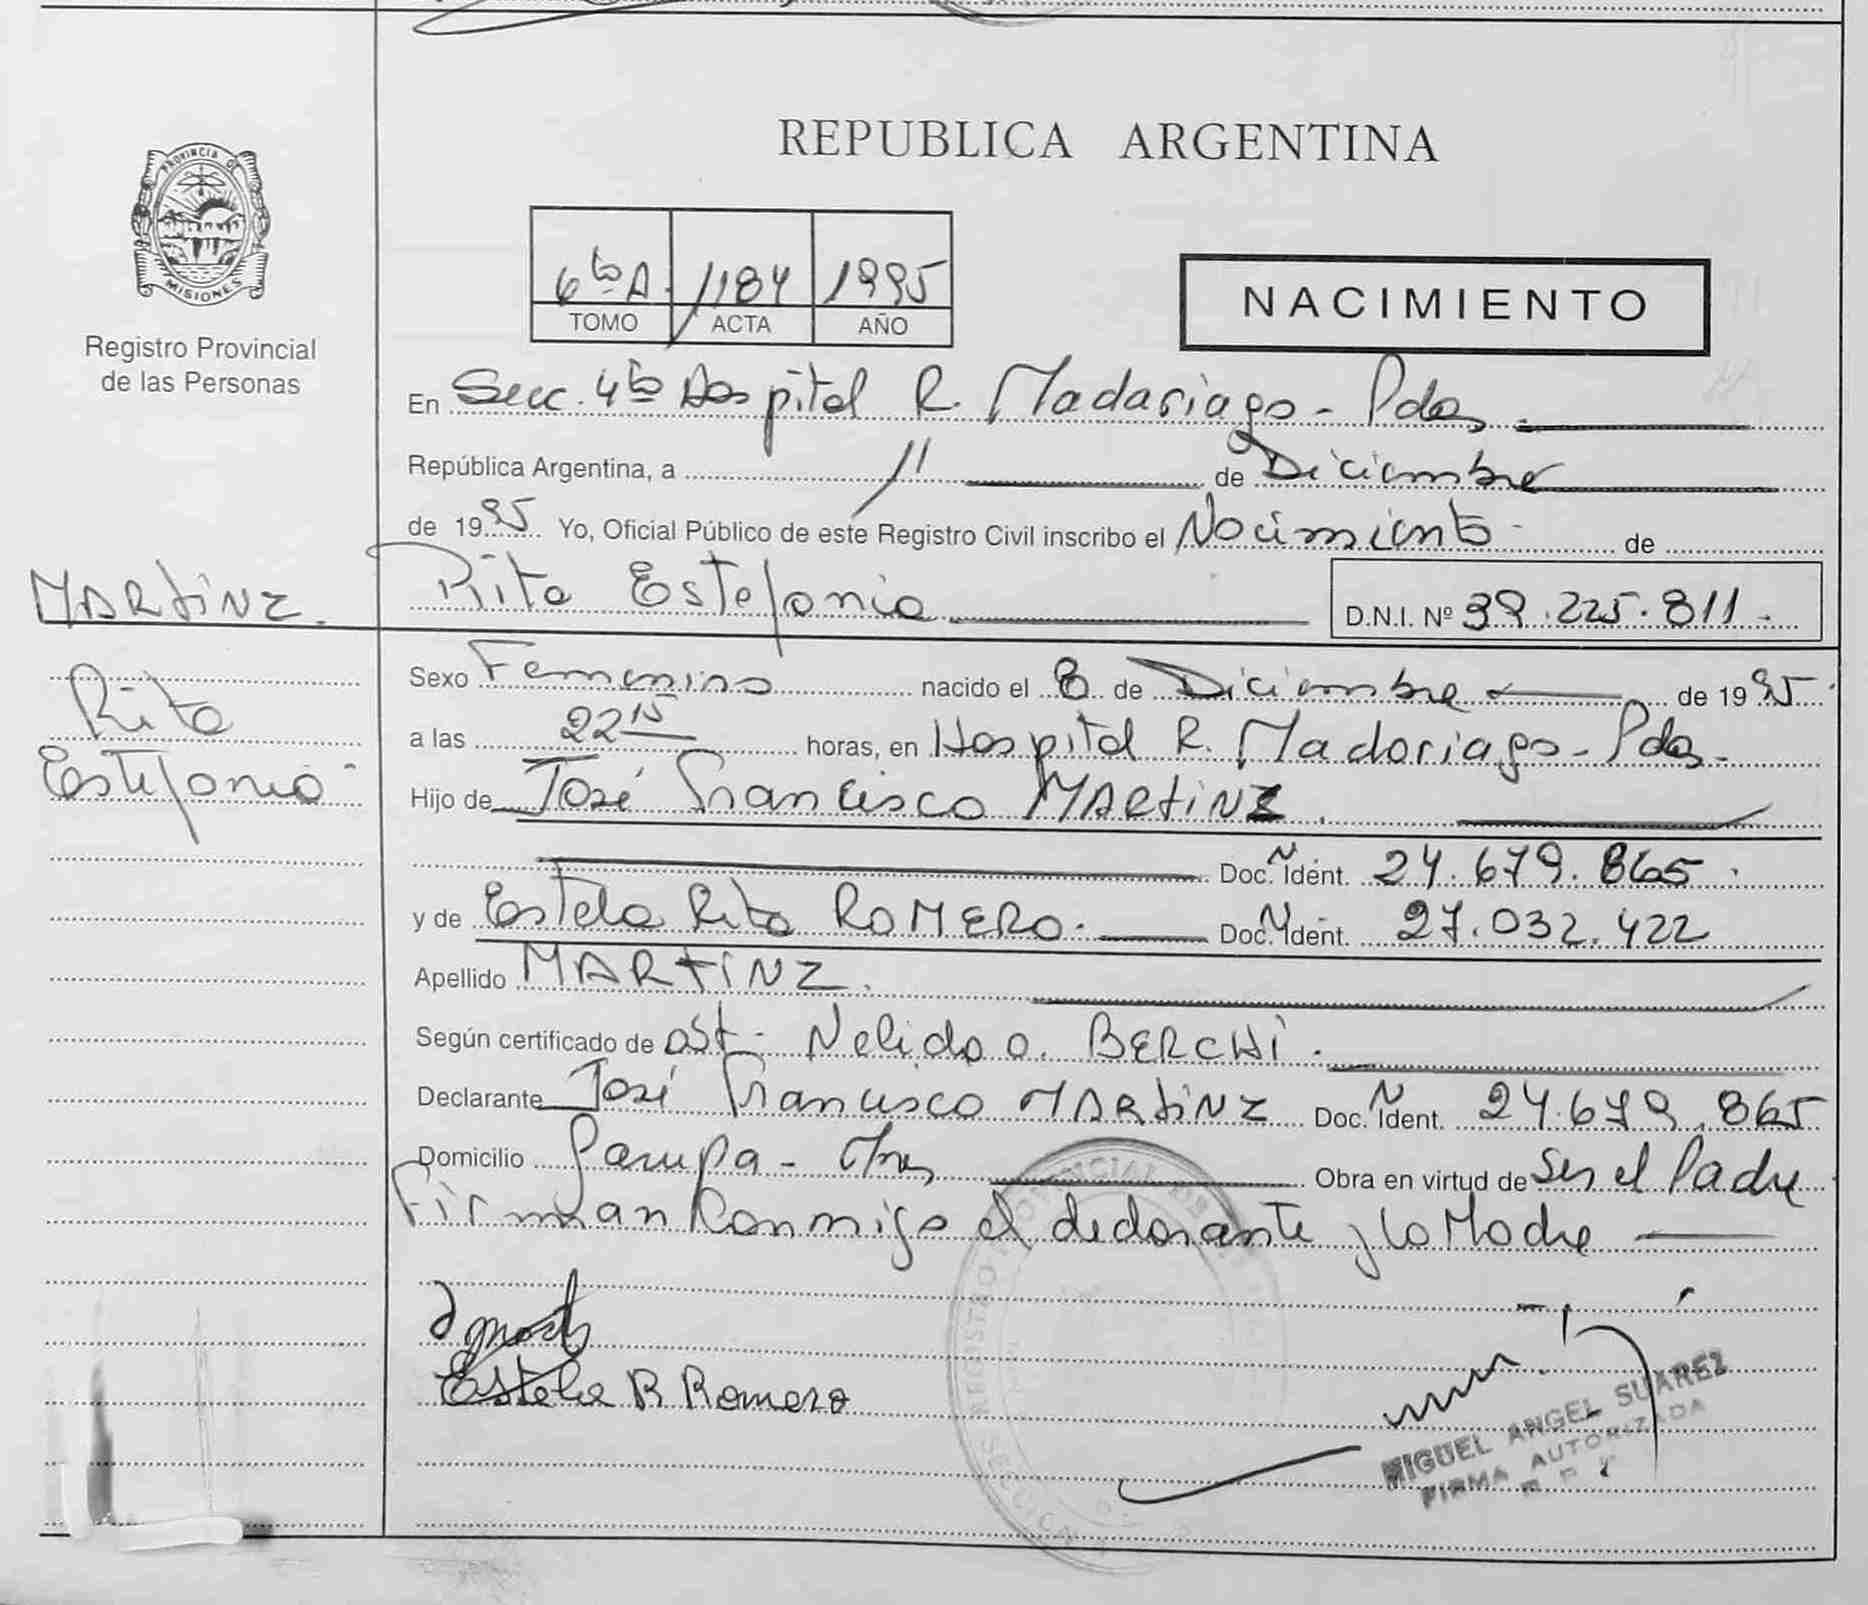 REPUBLICA ARGENTINA
PROVINCIA DE
MISIONES
Registro Provincial
de las Personas
6to A. 1184 1995
TOMO ACTA AÑO
NACIMIENTO
En Secc. 4to Hospital R. Madariaga - Pdas
República Argentina, a 11 de Diciembre
de 1995 Yo, Oficial Público de este Registro Civil inscribo el Nacimiento de
MARTINZ. Rita Estefania D.N.I. Nº 39.225.811.
Rita
Estefania
Sexo Femenino nacido el 8 de Diciembre de 1995
a las 22 15 horas, en Hospital R. Madariaga - Pdas.
Hijo de José Francisco MARTINZ.
Doc. N Ident. 24.679.865
y de Estela Rita ROMERO. Doc. N Ident. 27.032.422
Apellido MARTINZ.
Según certificado de Obst. Nelida O. BERCHI.
Declarante José Francisco MARTINZ Doc. N Ident. 24.679.865
Domicilio Garupa - Mnes Obra en virtud de Ser el Padre
Firman Conmigo el declarante y la Madre
Estela R Romero
MIGUEL ANGEL SUAREZ
FIRMA AUTORIZADA